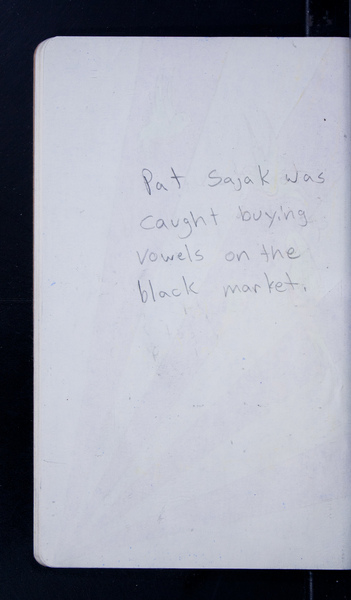 Pat Sajak was
caught buying
vowels on the
black market.